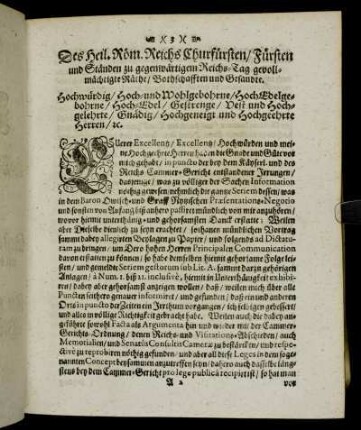 3
Des Heil. Röm. Reichs Churfürsten/ Fürsten
und Ständen zu gegenwärtigem Reichs-Tag gevoll-
mächtigte Räthe/ Bothschafften und Gesandte.
Hochwürdig/ Hoch- und Wohlgebohrne/ Hoch-Edelge-
bohrne/ Hoch-Edel/ Gestrenge/ Vest und Hoch-
gelehrte/ Gnädig/ Hochgeneigt und Hochgeehrte
Herren/ ꝛc.
Excellenz/ Excellenz/ Hochwürden und mei-
ne Hochgeehrte Herren haben die Gnade und Güte vor
mich gehabt/ in puncto der bey dem Käyserl. und des
Reichs Cammer-Gericht entstandener Irrungen/
dasjenige/ was zu völliger der Sachen Information
nöthig gewesen/ nehmlich die gantze Seriem dessen/ was
in dem Baron und Graff Præsentations-Negotio
und sonsten von Anfang biß anhero passiret mündlich von mir anzuhören/
wovor hiemit unterthänig- und gehorsamsten Danck erstatte: Weilen
aber Dieselbe dienlich zu seyn erachtet/ sothanen mündlichen Vortrag
sammt dabey allegirten Beylagen zu Papier/ und folgends ad Dictatu-
ram zu bringen/ um Dero hohen Herren Principalen Communication
davon erstatten zu können/ so habe demselben hiemit gehorsame Folge lei-
sten/ und gemeldte Seriem gestorum sub Lit. A. sammt darzu gehörigen
Anlagen/ à Num. 1. biß 11. inclusivè, hiemit in Unterthänigkeit exhibi-
ren/ dabey aber gehorsamst anzeigen wollen/ daß/ weilen mich über alle
Puncten seithero genauer informiret/ und gefunden/ daß ein und anderen
Orts in puncto der Zeiten ein Irrthum vorgangen/ ich selbigen gebessert/
und alles in völlige Richtigkeit gebracht habe. Weilen auch die dabey an-
geführte sowohl Facta als Argumenta hin und wieder mit der Cammer-
Gerichts-Ordnung/ denen Reichs- und Visitations-Abschieden/ auch
Memorialien/ und Senatûs Consultis Cameræ zu bestärcken/ und respe-
ctivè zu reprobiren nöthig gefunden/ und aber all diese Leges in dem so ge-
nannten Concept beysammen anzutreffen seyn/ dahero auch dasselbe läng-
stens bey dem Cammer-Gericht pro lege publicâ recipiret ist/ so hat man
A 2 vor